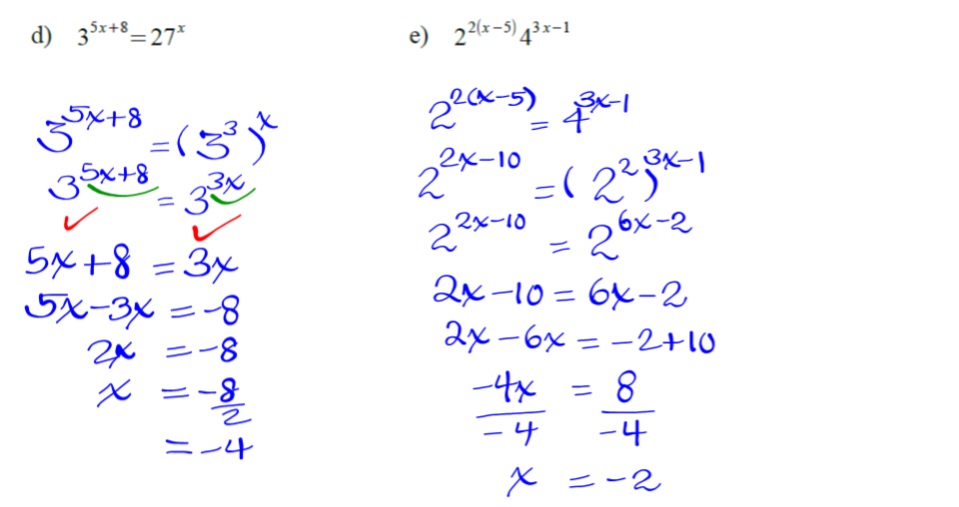 d) 3^{5x+8} = 27^x
3^{5x+8} = (3^3)^x
3^{5x+8} = 3^{3x}
5x+8 = 3x
5x-3x = -8
2x = -8
x = -8/2
= -4
e) 2^{2(x-5)} 4^{3x-1}
2^{2(x-5)} = 4^{3x-1}
2^{2x-10} = (2^2)^{3x-1}
2^{2x-10} = 2^{6x-2}
2x-10 = 6x-2
2x-6x = -2+10
-4x/-4 = 8/-4
x = -2